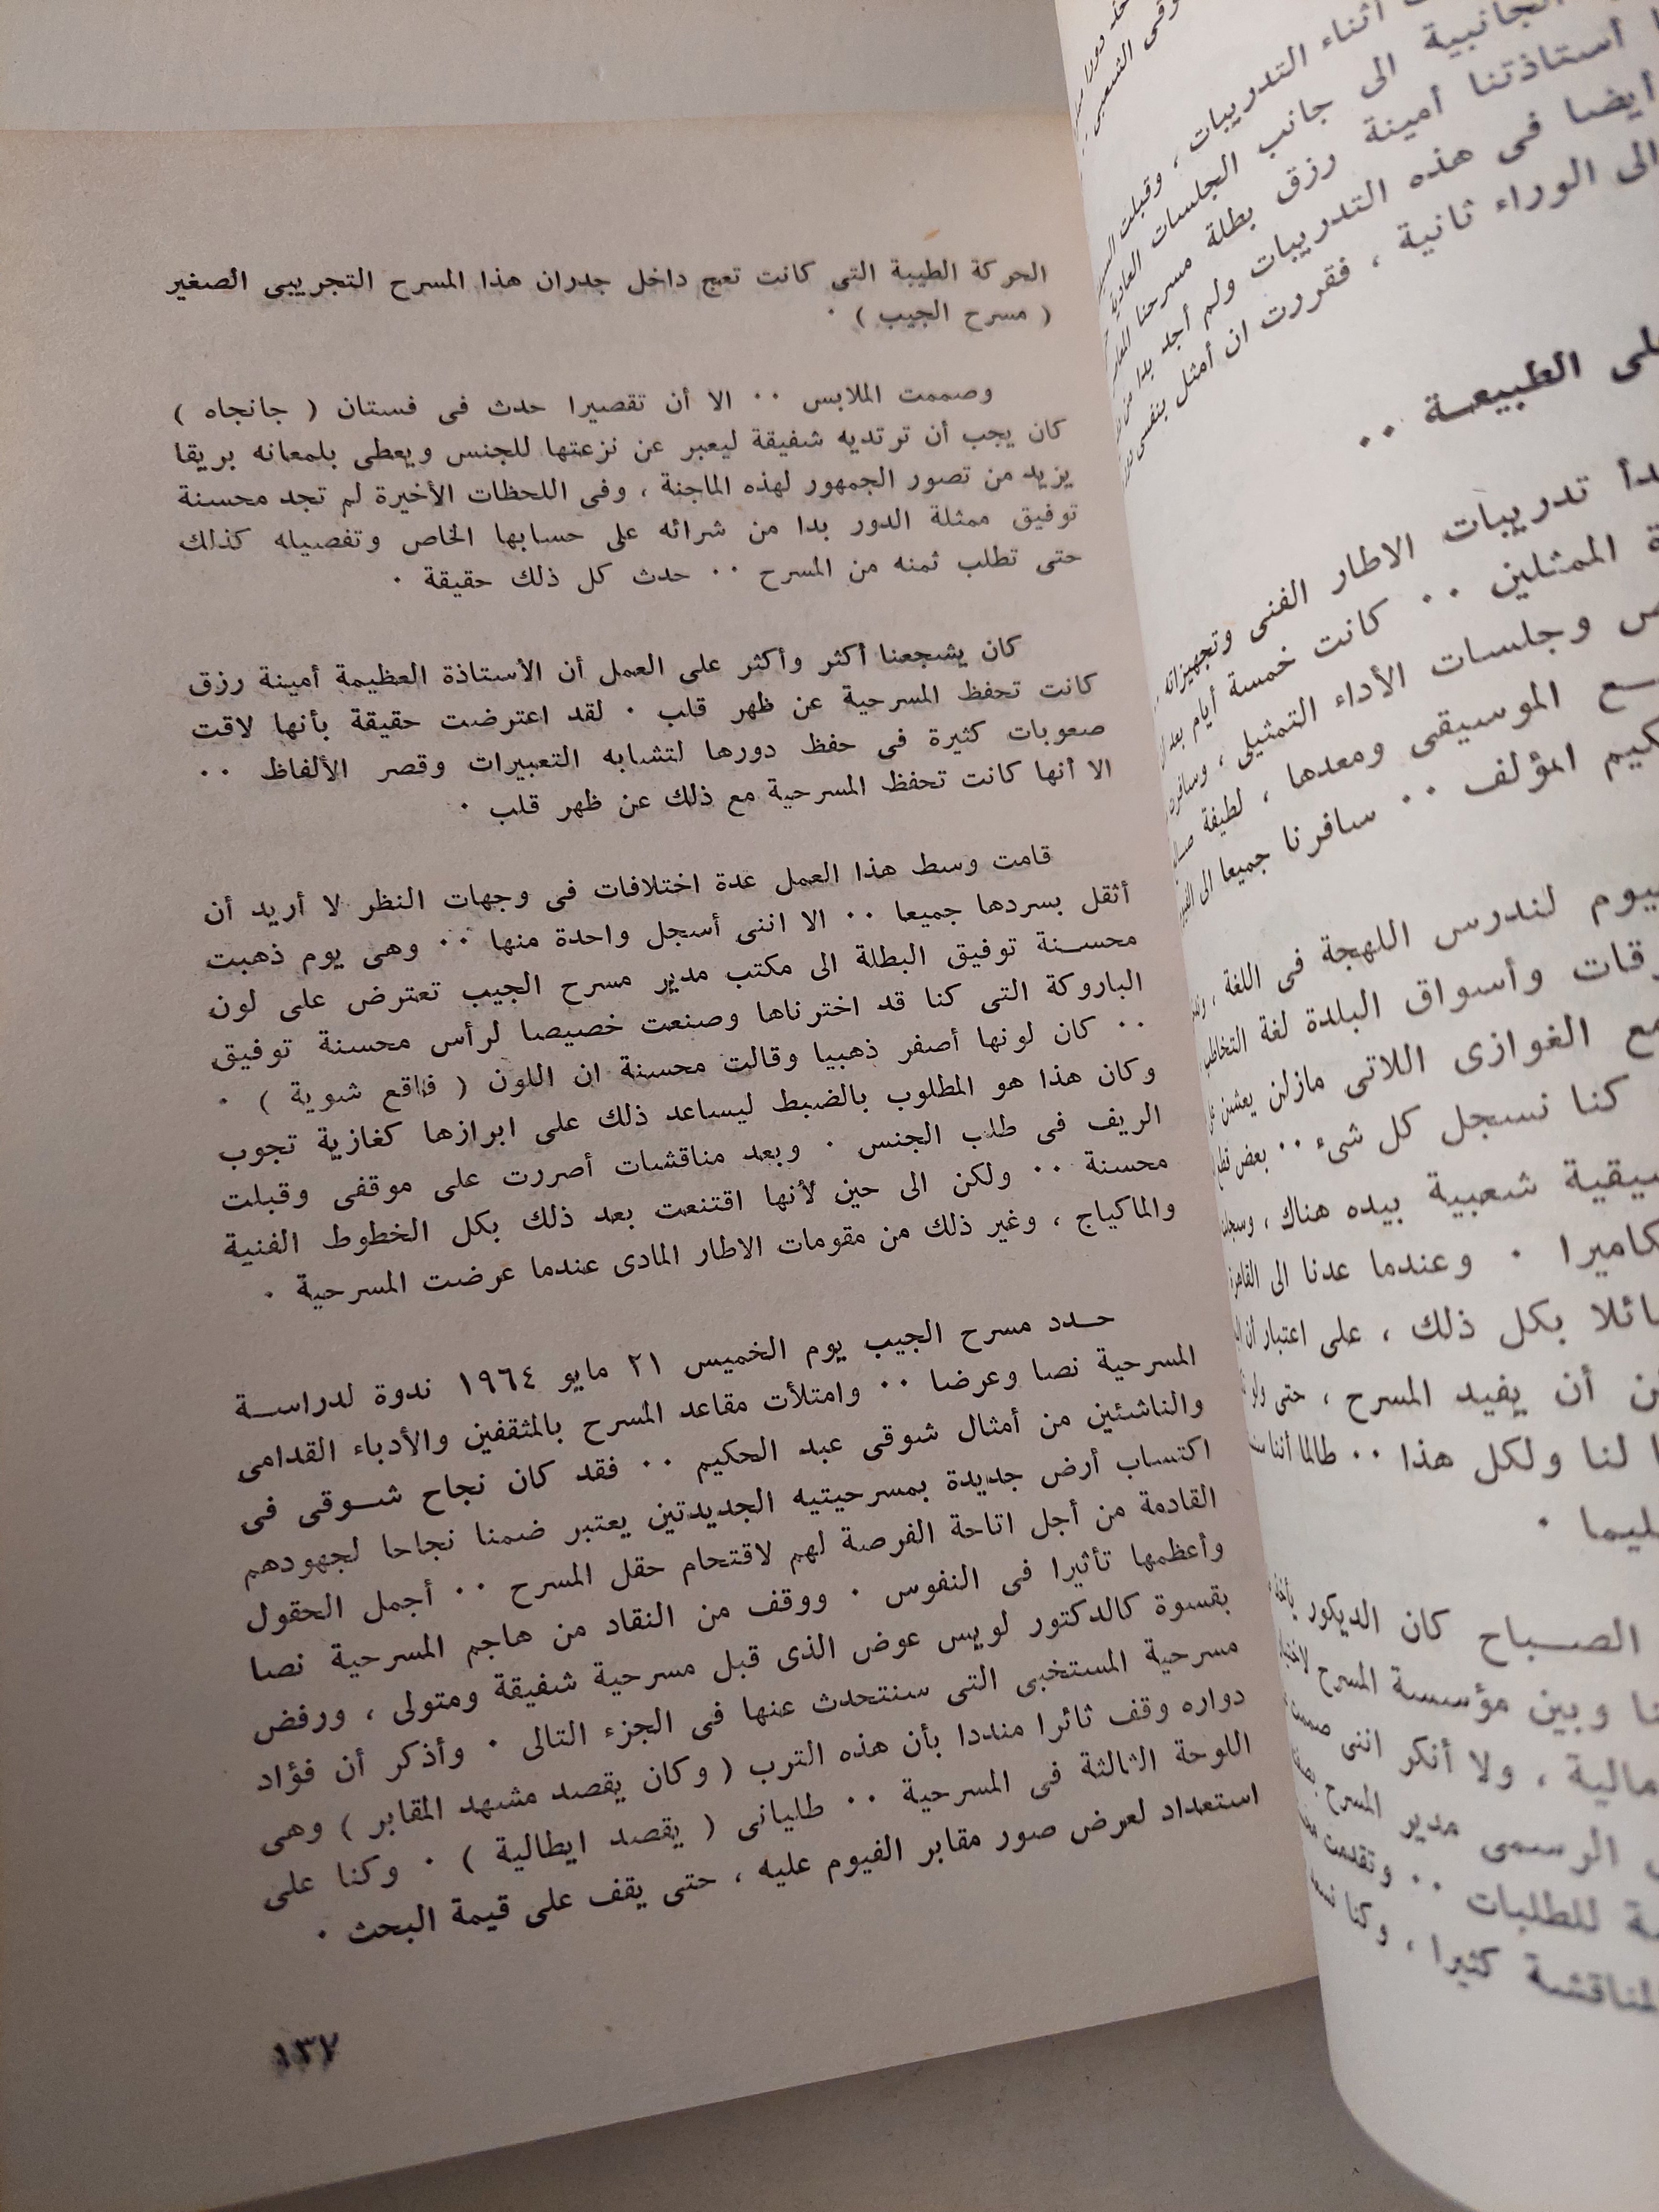 الحركة الطيبة التى كانت تعج داخل جدران هذا المسرح التجريبى الصغير
( مسرح الجيب ) ٠
وصممت الملابس ٠٠ الا أن تقصيرا حدث فى فستان ( جانجاه )
كان يجب أن ترتديه شفيقة ليعبر عن نزعتها للجنس ويعطى بلمعانه بريقا
يزيد من تصور الجمهور لهذه الماجنة ، وفى اللحظات الأخيرة لم تجد محسنة
توفيق ممثلة الدور بدا من شرائه على حسابها الخاص وتفصيله كذلك
حتى تطلب ثمنه من المسرح ٠٠ حدث كل ذلك حقيقة ٠
كان يشجعنا أكثر وأكثر على العمل أن الأستاذة العظيمة أمينة رزق
كانت تحفظ المسرحية عن ظهر قلب ٠ لقد اعترضت حقيقة بأنها لاقت
صعوبات كثيرة فى حفظ دورها لتشابه التعبيرات وقصر الألفاظ ٠٠
الا أنها كانت تحفظ المسرحية مع ذلك عن ظهر قلب ٠
قامت وسط هذا العمل عدة اختلافات فى وجهات النظر لا أريد أن
أثقل بسردها جميعا ٠٠ الا اننى أسجل واحدة منها ٠٠ وهى يوم ذهبت
محســنة توفيق البطلة الى مكتب مدير مسرح الجيب تعترض على لون
الباروكة التى كنا قد اخترناها وصنعت خصيصا لرأس محسنة توفيق
٠٠ كان لونها أصفر ذهبيا وقالت محسنة ان اللون ( فاقع شوية ) ٠
وكان هذا هو المطلوب بالضبط ليساعد ذلك على ابرازها كغازية تجوب
الريف فى طلب الجنس ٠ وبعد مناقشات أصررت على موقفى وقبلت
محسنة ٠٠ ولكن الى حين لأنها اقتنعت بعد ذلك بكل الخطوط الفنية
والماكياج ، وغير ذلك من مقومات الاطار المادى عندما عرضت المسرحية ٠
حــدد مسرح الجيب يوم الخميس ٢١ مايو ١٩٦٤ ندوة لدراســة
المسرحية نصا وعرضا ٠٠ وامتلأت مقاعد المسرح بالمثقفين والأدباء القدامى
والناشئين من أمثال شوقى عبد الحكيم ٠٠ فقد كان نجاح شــوقى فى
اكتساب أرض جديدة بمسرحيتيه الجديدتين يعتبر ضمنا نجاحا لجهودهم
القادمة من أجل اتاحة الفرصة لهم لاقتحام حقل المسرح ٠٠ أجمل الحقول
وأعظمها تأثيرا فى النفوس ٠ ووقف من النقاد من هاجم المسرحية نصا
بقسوة كالدكتور لويس عوض الذى قبل مسرحية شفيقة ومتولى ، ورفض
مسرحية المستخبى التى سنتحدث عنها فى الجزء التالى ٠ وأذكر أن فؤاد
دواره وقف ثائرا منددا بأن هذه الترب ( وكان يقصد مشهد المقابر ) وهى
اللوحة الثالثة فى المسرحية ٠٠ طليانى ( يقصد ايطالية ) ٠ وكنا على
استعداد لعرض صور مقابر الفيوم عليه ، حتى يقف على قيمة البحث ٠
١٣٧
أثناء التدريبات ، وقبلت
الجانبية الى جانب الجلسات العادية
أستاذتنا أمينة رزق بطلة مسرحنا
أيضا فى هذه التدريبات ولم أجد بدا من
الى الوراء ثانية ، فقررت ان أمثل بنفسى
الطبيعــة ٠٠
تدريبات الاطار الفنى وتجهيزاته
الممثلين ٠٠ كانت خمسة أيام بعد
وجلسات الأداء التمثيلى ، وسافرت
الموسيقى ومعدها ، لطيفة
المؤلف ٠٠ سافرنا جميعا الى
لندرس اللهجة فى اللغة ،
وأسواق البلدة لغة التخاطب
الغوازى اللاتى مازلن يعشن
كنا نسجل كل شىء ٠٠ بعض
شعبية بيده هناك ،
٠ وعندما عدنا الى القاهرة
بكل ذلك ، على اعتبار أن
أن يفيد المسرح ، حتى
لنا ولكل هذا ٠٠ طالما أننا
الصــباح كان الديكور
وبين مؤسسة المسرح
، ولا أنكر اننى صممت
الرسمى مدير المسرح
للطلبات ٠٠ وتقدمت
كثيرا ، وكنا